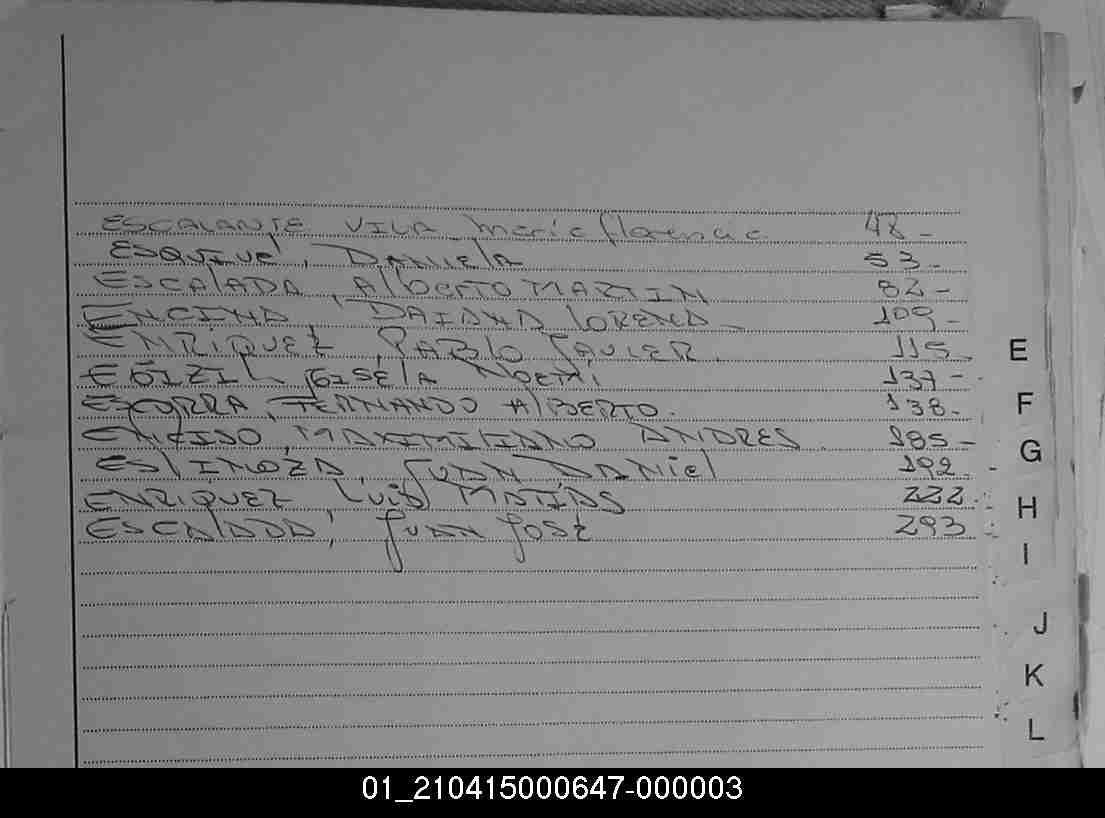 ESCALANTE VILA Maria florencia 48-
ESQUIVEL, DANIELA 53-
ESCALADA, AlbERTO MARTIN 82-
ENCINA, DAIANA LORENA- 109-
ENRIQUEZ, PABLO JAVIER. 115.
GISELA NOEMI 137-
FERNANDO AlBERTO. 138-
ENCISO, MAXIMILIANO ANDRES. 185-
JUAN DANIEL 192.
ENRIQUEZ, LUIS MATIAS 222.
ESCALADA, JUAN JOSE 293
E
F
G
H
I
J
K
L
01_210415000647-000003